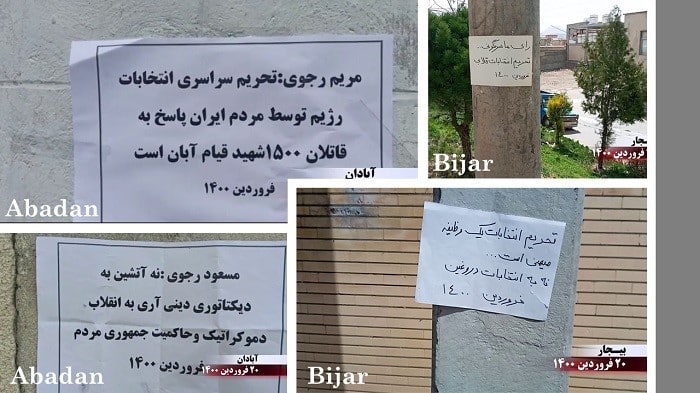 مریم رجوی:تحریم سراسری انتخابات
رژیم توسط مردم ایران پاسخ به
قاتلان ۱۵۰۰شهید قیام آبان است
فروردین ۱۴۰۰
آبادان
Abadan
رای ما سرنگونی..
تحریم انتخابات قلابی
فروردین ۱۴۰۰
بیجار
۲۰ فروردین ۱۴۰۰
Bijar
مسعود رجوی :نه آتشین به
دیکتاتوری دینی آری به انقلاب
دموکراتیک وحاکمیت جمهوری مردم
فروردین ۱۴۰۰
آبادان
۲۰ فروردین ۱۴۰۰
Abadan
تحریم انتخابات یک وظیفه
میهنی است...
نه به انتخابات دروغین
فروردین ۱۴۰۰
بیجار
۲۰ فروردین ۱۴۰۰
Bijar